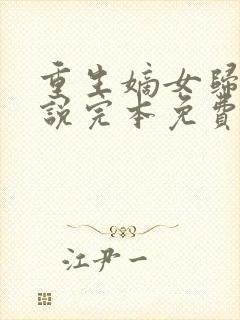 重生嫡女歸
說完本免費
江尹一